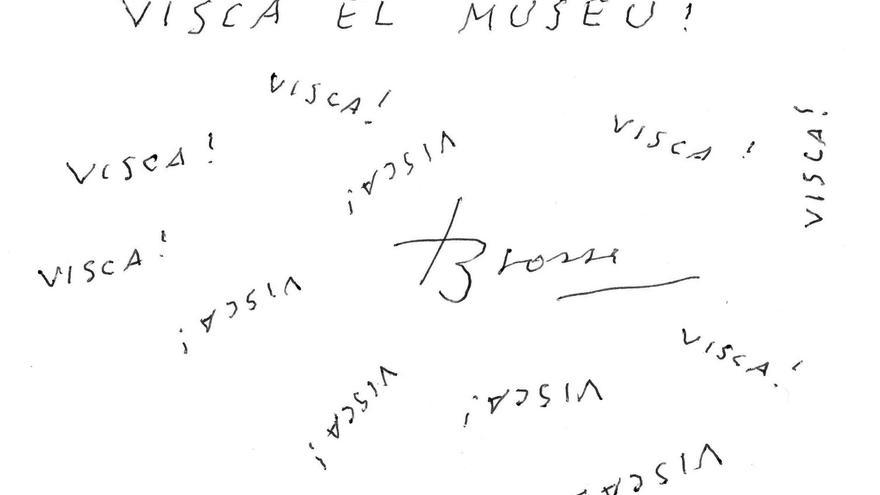 VISCA EL MUSEU!
VISCA!
VISCA!
VISCA!
VISCA!
VISCA!
Brossa
VISCA!
VISCA!
VISCA!
VISCA!
VISCA!
VISCA